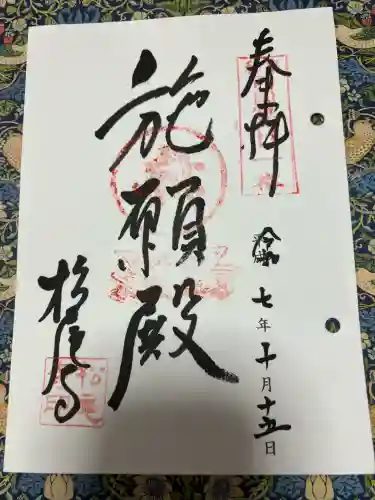 奉拝
令和七年十月十五日
施願殿
松尾寺